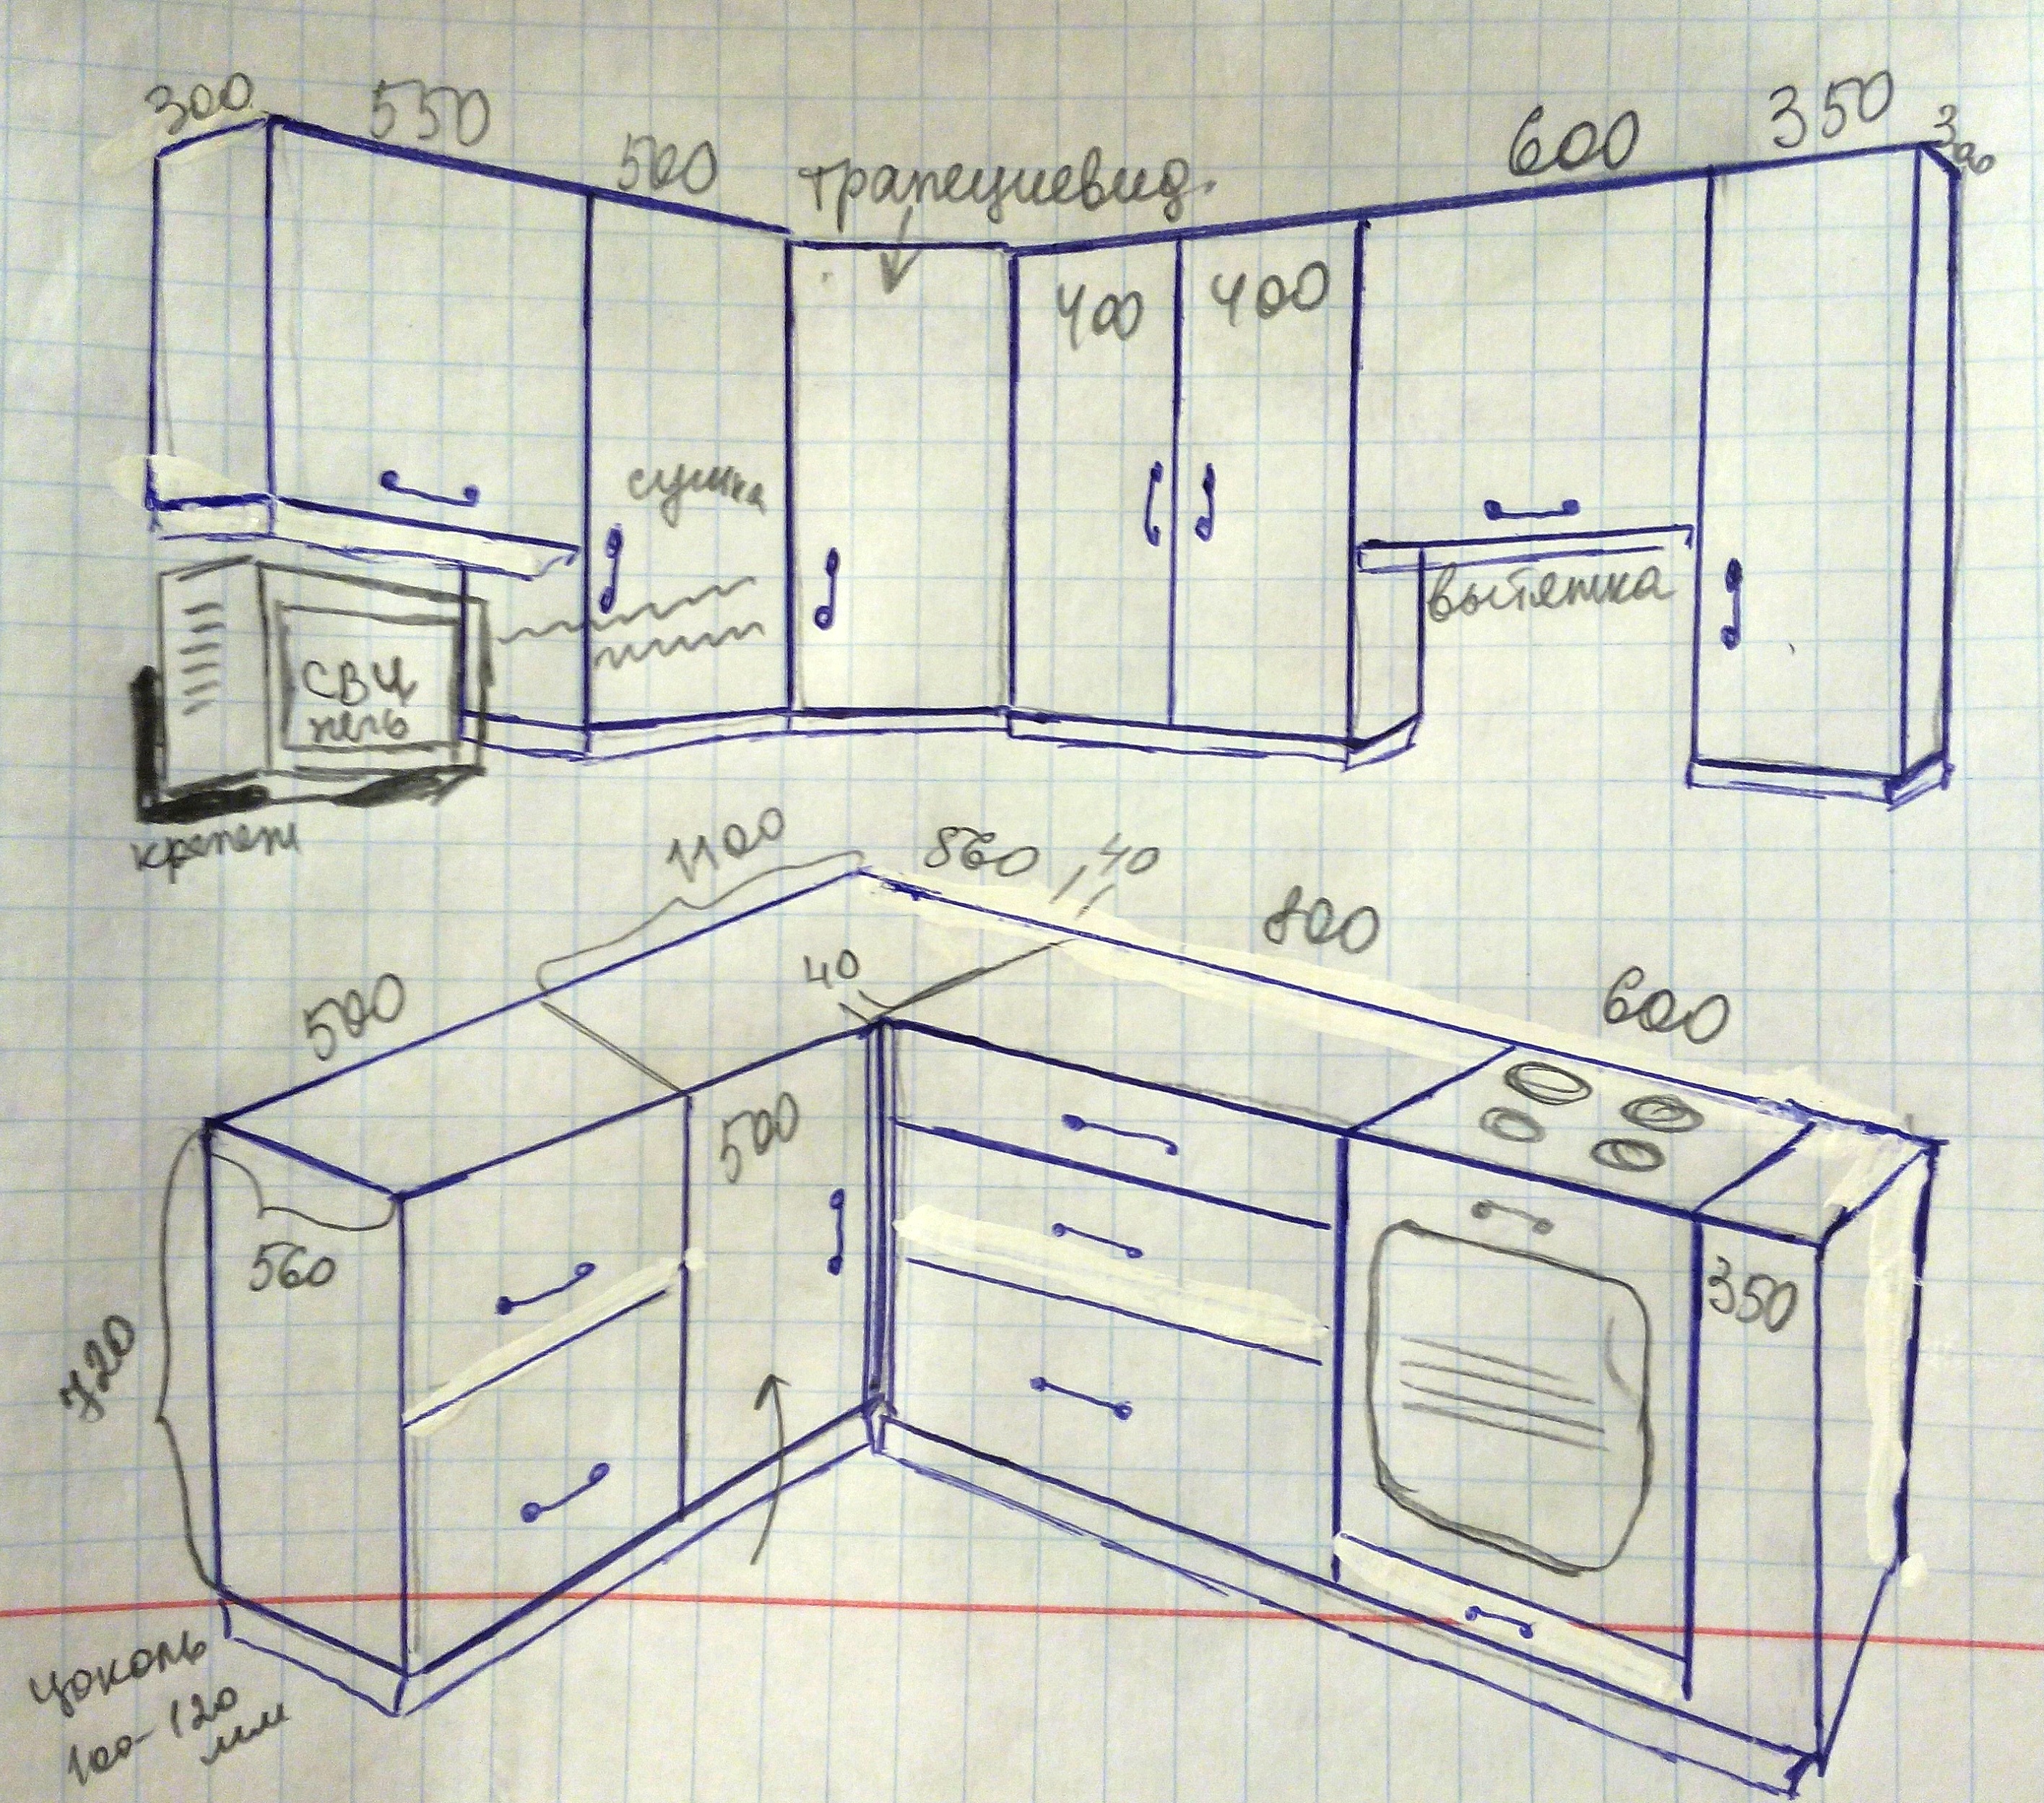 300
550
500
трапециевид.
600
350
300
400
400
сушка
вытяжка
СВЧ
печь
крепеж
1100
560
40
800
600
40
500
500
560
720
350
цоколь
100-120
мм